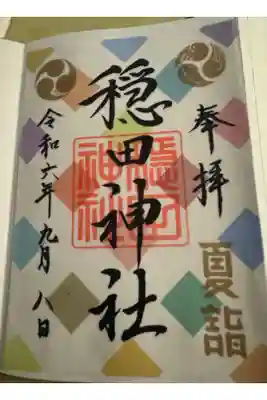 奉拝
夏詣
穏田神社
穏田神社
令和六年九月八日